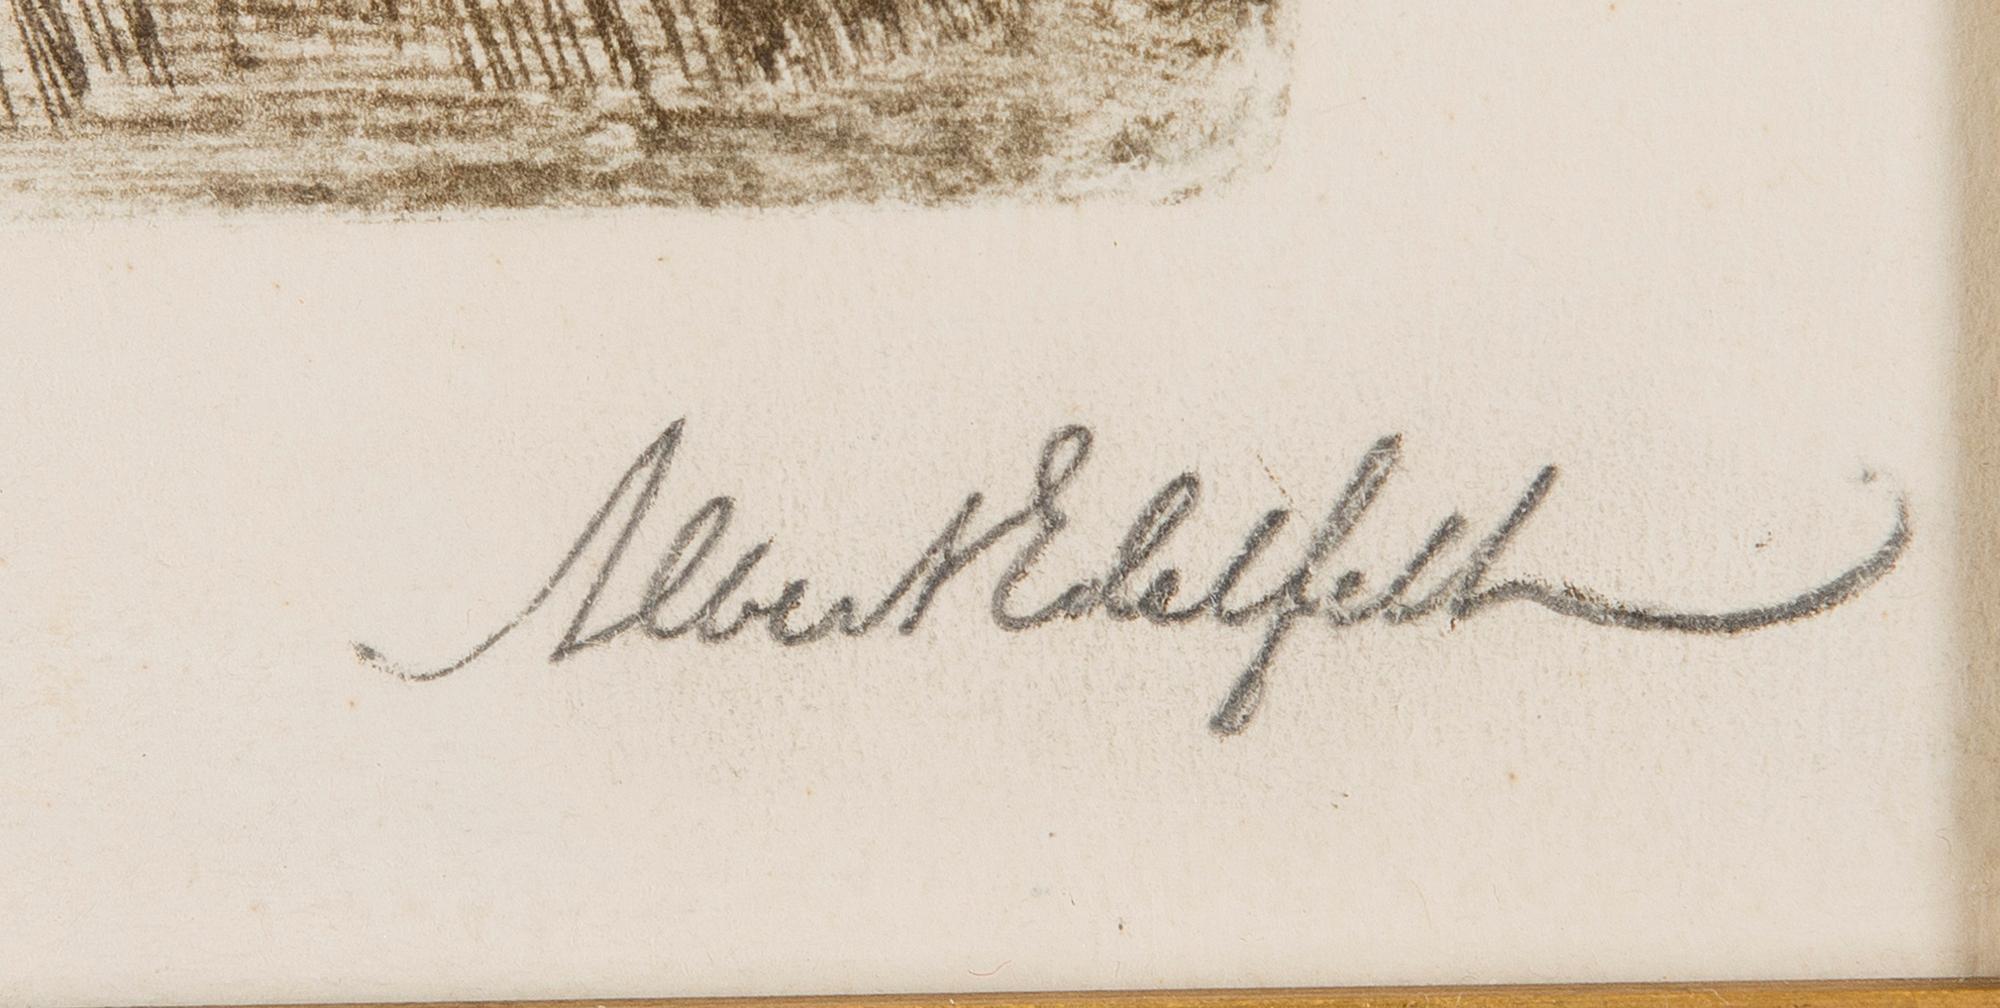 Albert Edelfelt